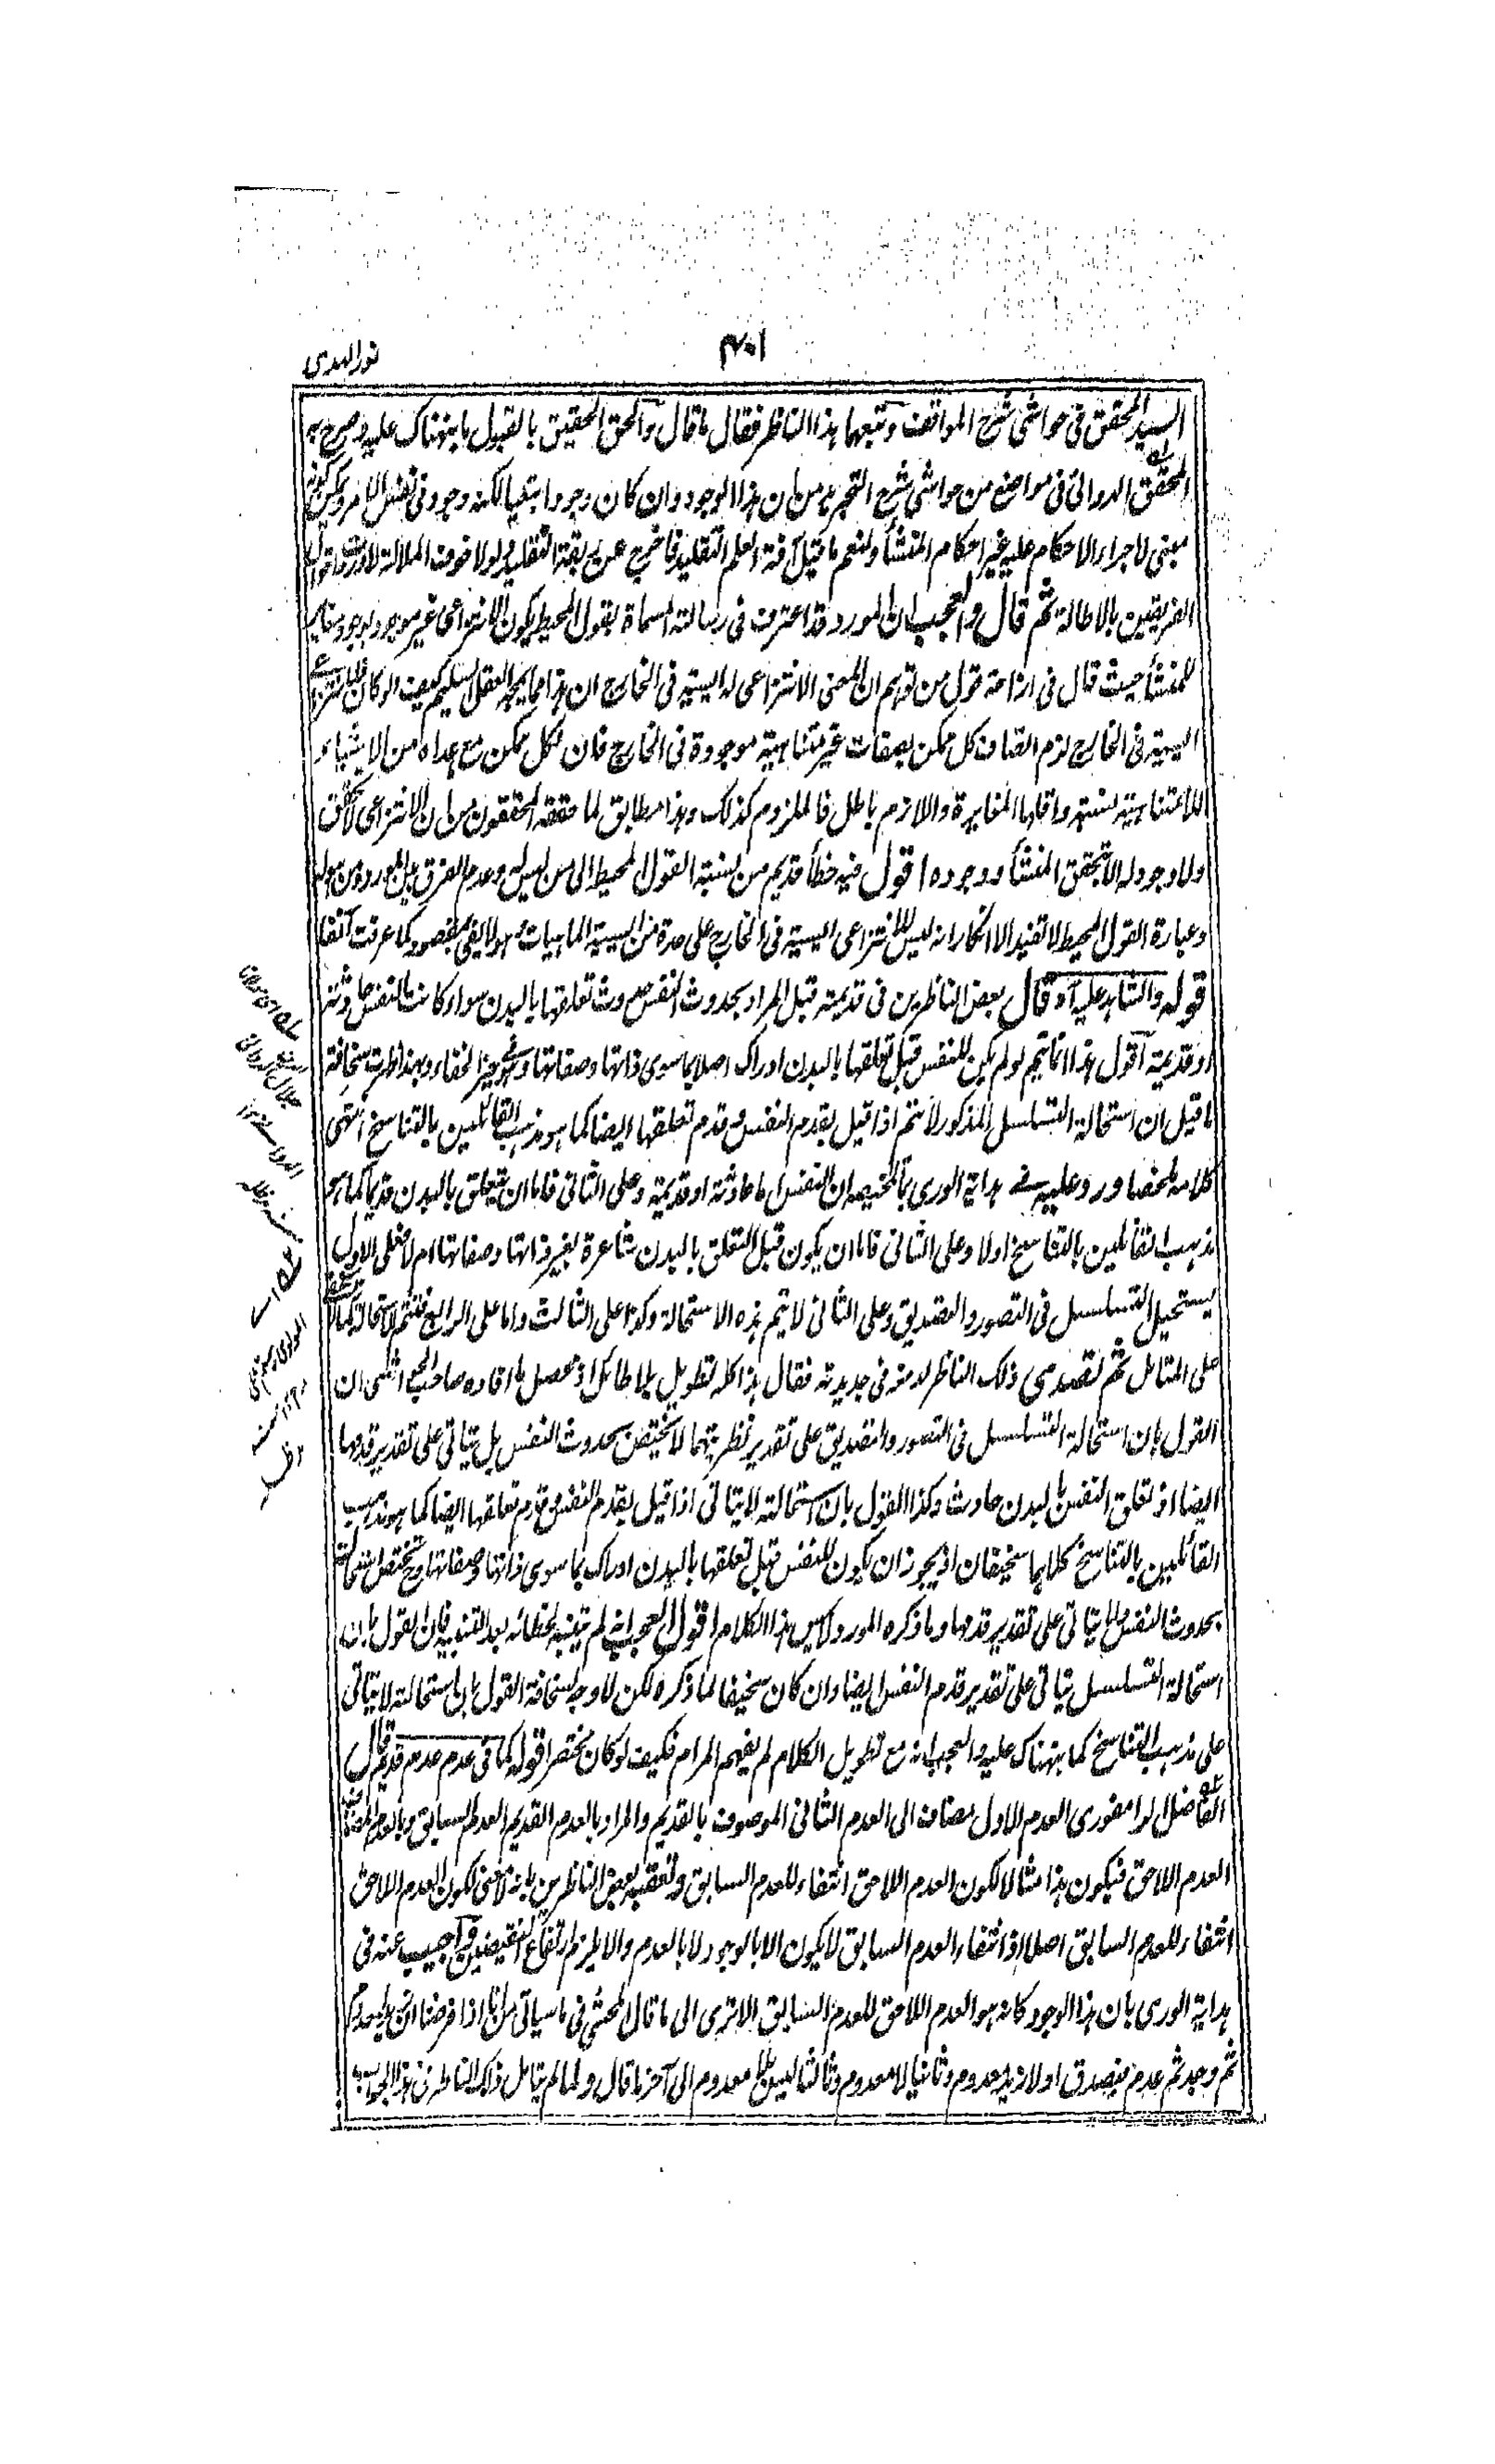 نور الهدى
السيد المحقق فى حواشى شرح المواقف وتبعهما هذا الناظر فقال ما قال والحق الحقيق بالقبول ما نبهناك عليه وصرح به
المحقق الدوانى فى مواضع من حواشى شرح التجريد من ان هذا الوجود وان كان وجودا تبعيا لكنه وجود فى نفس الامر
معنى لاجراء الاحكام عليه غير احكام المنشأ ولنعم ما قيل آفة العلم التقليد فاخرج عن ربقة التقليد ولولا خوف الملالة لاوردت اقوال
الفريقين بالاطالة ثم قال والعجب ان المورد قد اعترف فى رسالته المسماة بقول المحيط بكون الانتزاعى غير موجود بوجود مغاير
للمنشأ حيث قال فى ازاحة قول من توهم ان المعنى الانتزاعى له ايسية فى الخارج ان هذا مما يمجه العقل السليم كيف لو كان
ايسية فى الخارج لزم اتصاف كل ممكن بصفات غير متناهية موجودة فى الخارج فان لكل ممكن مع ما عداه من الاشياء
اللامتناهية نسبة واقلها المغايرة واللازم باطل فالملزوم كذلك وهذا مطابق لما حققه المحققون من ان الانتزاعى لا تحقق
ولا وجود له الا بتحقق المنشأ ووجوده اقول فيه خطأ قديم من نسبة القول المحيط الى من ليس له وعدم الفرق بين المورد ومن هو له
وعبارة القول المحيط لا تفيد الا انكار انه ليس للانتزاعى ايسية فى الخارج على حدة من ايسية الماهيات وهو لا يفى بمقصوده كما عرفت آنفا
قوله والشاهد عليه آه قال بعض الناظرين فى قديمته قيل المراد بحدوث النفس حدوث تعلقها بالبدن سواء كانت النفس حادثة
او قديمة اقول هذا انما يتم لو لم يكن للنفس قبل تعلقها بالبدن ادراك اصلا بما سوى ذاتها وصفاتها وهو فى حيز الخفاء وبهذا ظهرت سخافة
ما قيل ان استحالة التسلسل المذكور لا تتم اذا قيل بقدم النفس وقدم تعلقها ايضا كما هو مذهب القائلين بالتناسخ انتهى
كلامه ملخصا ورد عليه فى هداية الورى بما تلخيصه ان النفس اما حادثة او قديمة وعلى الثانى فاما ان يتعلق بالبدن قديما كما هو
مذهب القائلين بالتناسخ اولا وعلى الثانى فاما ان يكون قبل التعلق بالبدن شاعرة بغير ذاتها وصفاتها ام لا فعلى الاول
يستحيل التسلسل فى التصور والتصديق وعلى الثانى لا يتم هذه الاستحالة وكذا على الثالث واما على الرابع فتتم الاستحالة كما لا يخفى
على المتأمل ثم تصدى ذلك الناظر لدفعه فى جديدته فقال هذا كله تطويل بلا طائل اذ محصل ما افاده صاحب الحواشى ان
القول بان استحالة التسلسل فى التصور والتصديق على تقدير نظريتهما لا تختص بحدوث النفس بل يتأتى على تقدير قدمها
ايضا اذ تعلق النفس بالبدن حادث وكذا القول بان استحالته لا يتأتى اذا قيل بقدم النفس وقدم تعلقها ايضا كما هو مذهب
القائلين بالتناسخ كلاهما سخيفان اذ يجوز ان يكون للنفس قبل تعلقها بالبدن ادراك بما سوى ذاتها وصفاتها وح تختص استحالته
بحدوث النفس ولا يتأتى على تقدير قدمها وما ذكره المورد لا يمس هذا الكلام اقول العجب انه لم يتنبه لخطائه بعد التنبيه فان القول بان
استحالة التسلسل يتأتى على تقدير قدم النفس ايضا وان كان سخيفا لما ذكره لكن لا وجه لسخافة القول بان استحالته لا يتأتى
على مذهب التناسخ كما نبهناك عليه والعجب انه مع تطويل الكلام لم يفهم المرام فكيف لو كان مختصرا قوله كما فى عدم عدم قديم قال
الفاضل الرامفورى العدم الاول مضاف الى العدم الثانى الموصوف بالقديم والمراد بالعدم القديم العدم السابق وبالعدم المضاف
العدم اللاحق فيكون هذا مثالا لكون العدم اللاحق انتفاء للعدم السابق وتعقبه بعض الناظرين بانه لا معنى لكون العدم اللاحق
انتفاء للعدم السابق اصلا اذ انتفاء العدم السابق لا يكون الا بالوجود لا بالعدم والا يلزم ارتفاع النقيضين واجيب عنه فى
هداية الورى بان هذا الوجود كانه هو العدم اللاحق للعدم السابق الا ترى الى ما قال المحشى فى ما سيأتى من انا اذا فرضنا ان زيدا معدوم
ثم وجد ثم عدم فيصدق اولا زيد معدوم وثانيا لا معدوم وثالثا ليس بلا معدوم الى آخر ما قال ولما لم يتأمل ذلك الناظر فى هذا الجواب